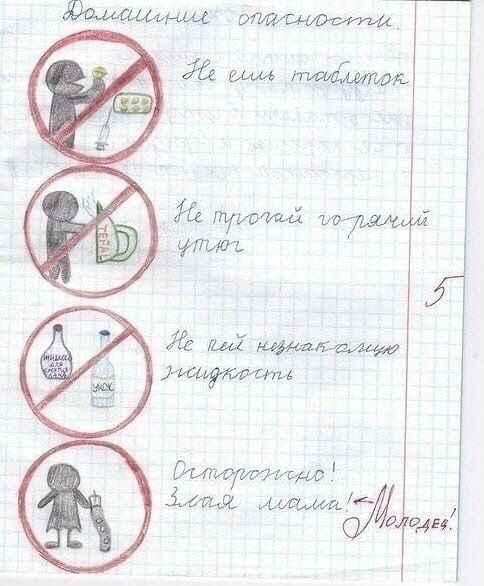 Домашние опасности.
Не ешь таблеток
Не трогай горячий
утюг
TEFAL
5
Не пей незнакомую
жидкость
жидкость
для
снятия
лака
УКСУС
Осторожно!
Злая мама!
Молодец!